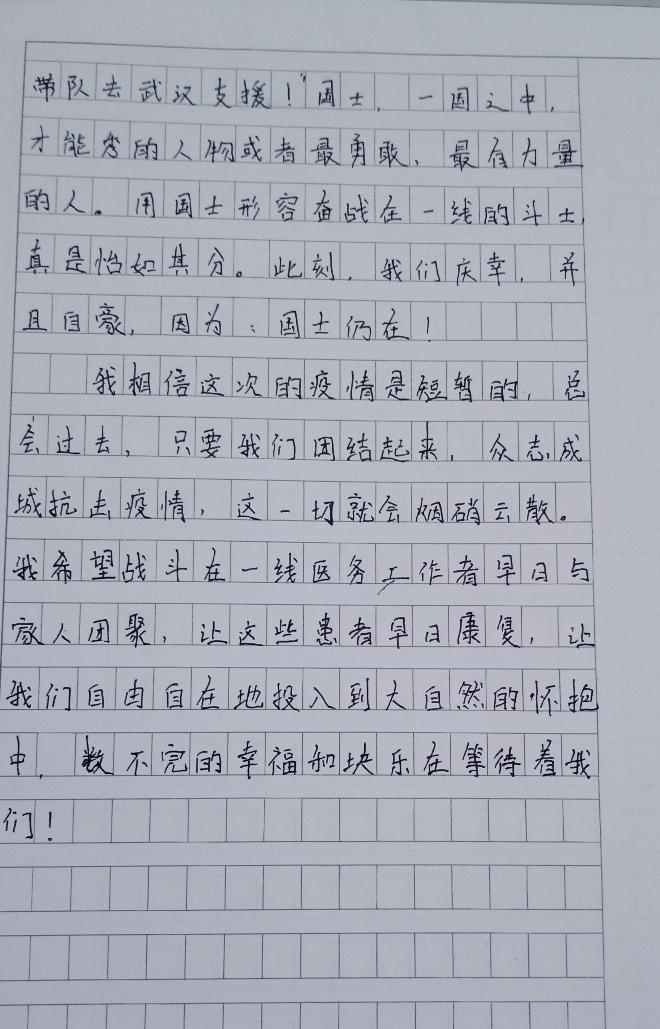 带队去武汉支援！"国士，一国之中，
才能秀的人物或者最勇敢、最有力量
的人。用国士形容奋战在一线的斗士，
真是恰如其分。此刻，我们庆幸，并
且自豪，因为：国士仍在！
我相信这次的疫情是短暂的，总
会过去，只要我们团结起来，众志成
城抗击疫情，这一切就会烟硝云散。
我希望战斗在一线医务工作者早日与
家人团聚，让这些患者早日康复，让
我们自由自在地投入到大自然的怀抱
中，数不完的幸福和快乐在等待着我
们！